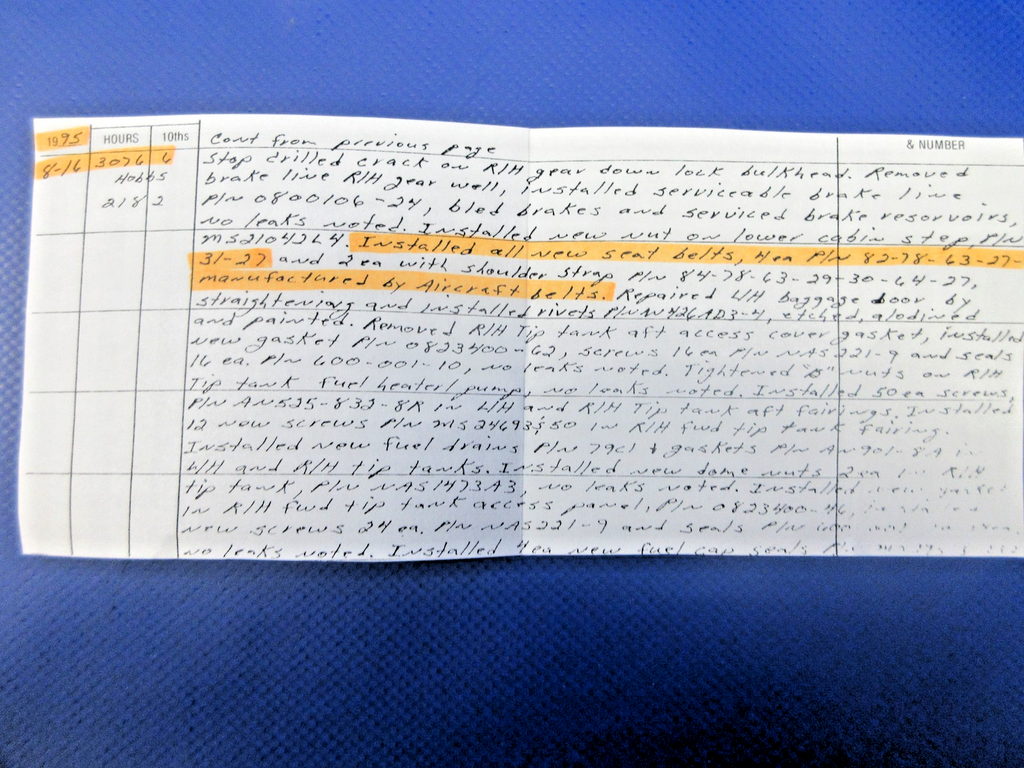 1995 HOURS 10ths & NUMBER
Cont from previous page
8-16 3076 6 Stop drilled crack on R/H gear down lock bulkhead. Removed
Hobbs brake line R/H gear well, installed serviceable brake line
218 2 P/N 0800106-24, bled brakes and serviced brake resorvoirs,
no leaks noted. Installed new nut on lower cabin step, P/N
MS21042L4. Installed all new seat belts, 4ea P/N 82-78-63-27-
31-27 and 2 ea with shoulder strap P/N 84-78-63-29-30-64-27,
manufactured by Aircraft belts. Repaired L/H baggage door by
straightening and installed rivets P/N AN426AD3-4, etched, alodined
and painted. Removed R/H Tip tank aft access cover gasket, installed
new gasket P/N 0823400-62, screws 16 ea P/N NAS221-9 and seals
16 ea. P/N 600-001-10, no leaks noted. Tightened "B" nuts on R/H
Tip tank fuel heater/pump, no leaks noted. Installed 50 ea screws,
P/N AN525-832-8R in L/H and R/H Tip tank aft fairings. Installed
12 new screws P/N in R/H fwd tip tank fairing.
Installed new fuel drains P/N & gaskets P/N AN901-8A in
L/H and R/H tip tanks. Installed new dome nuts 2ea in R/H
tip tank, P/N NAS1473A3, no leaks noted. Installed new gasket
in R/H fwd tip tank access panel, P/N 0823400-46,
new screws 24 ea. P/N NAS221-9 and seals P/N
no leaks noted. Installed 4ea new fuel cap seals P/N